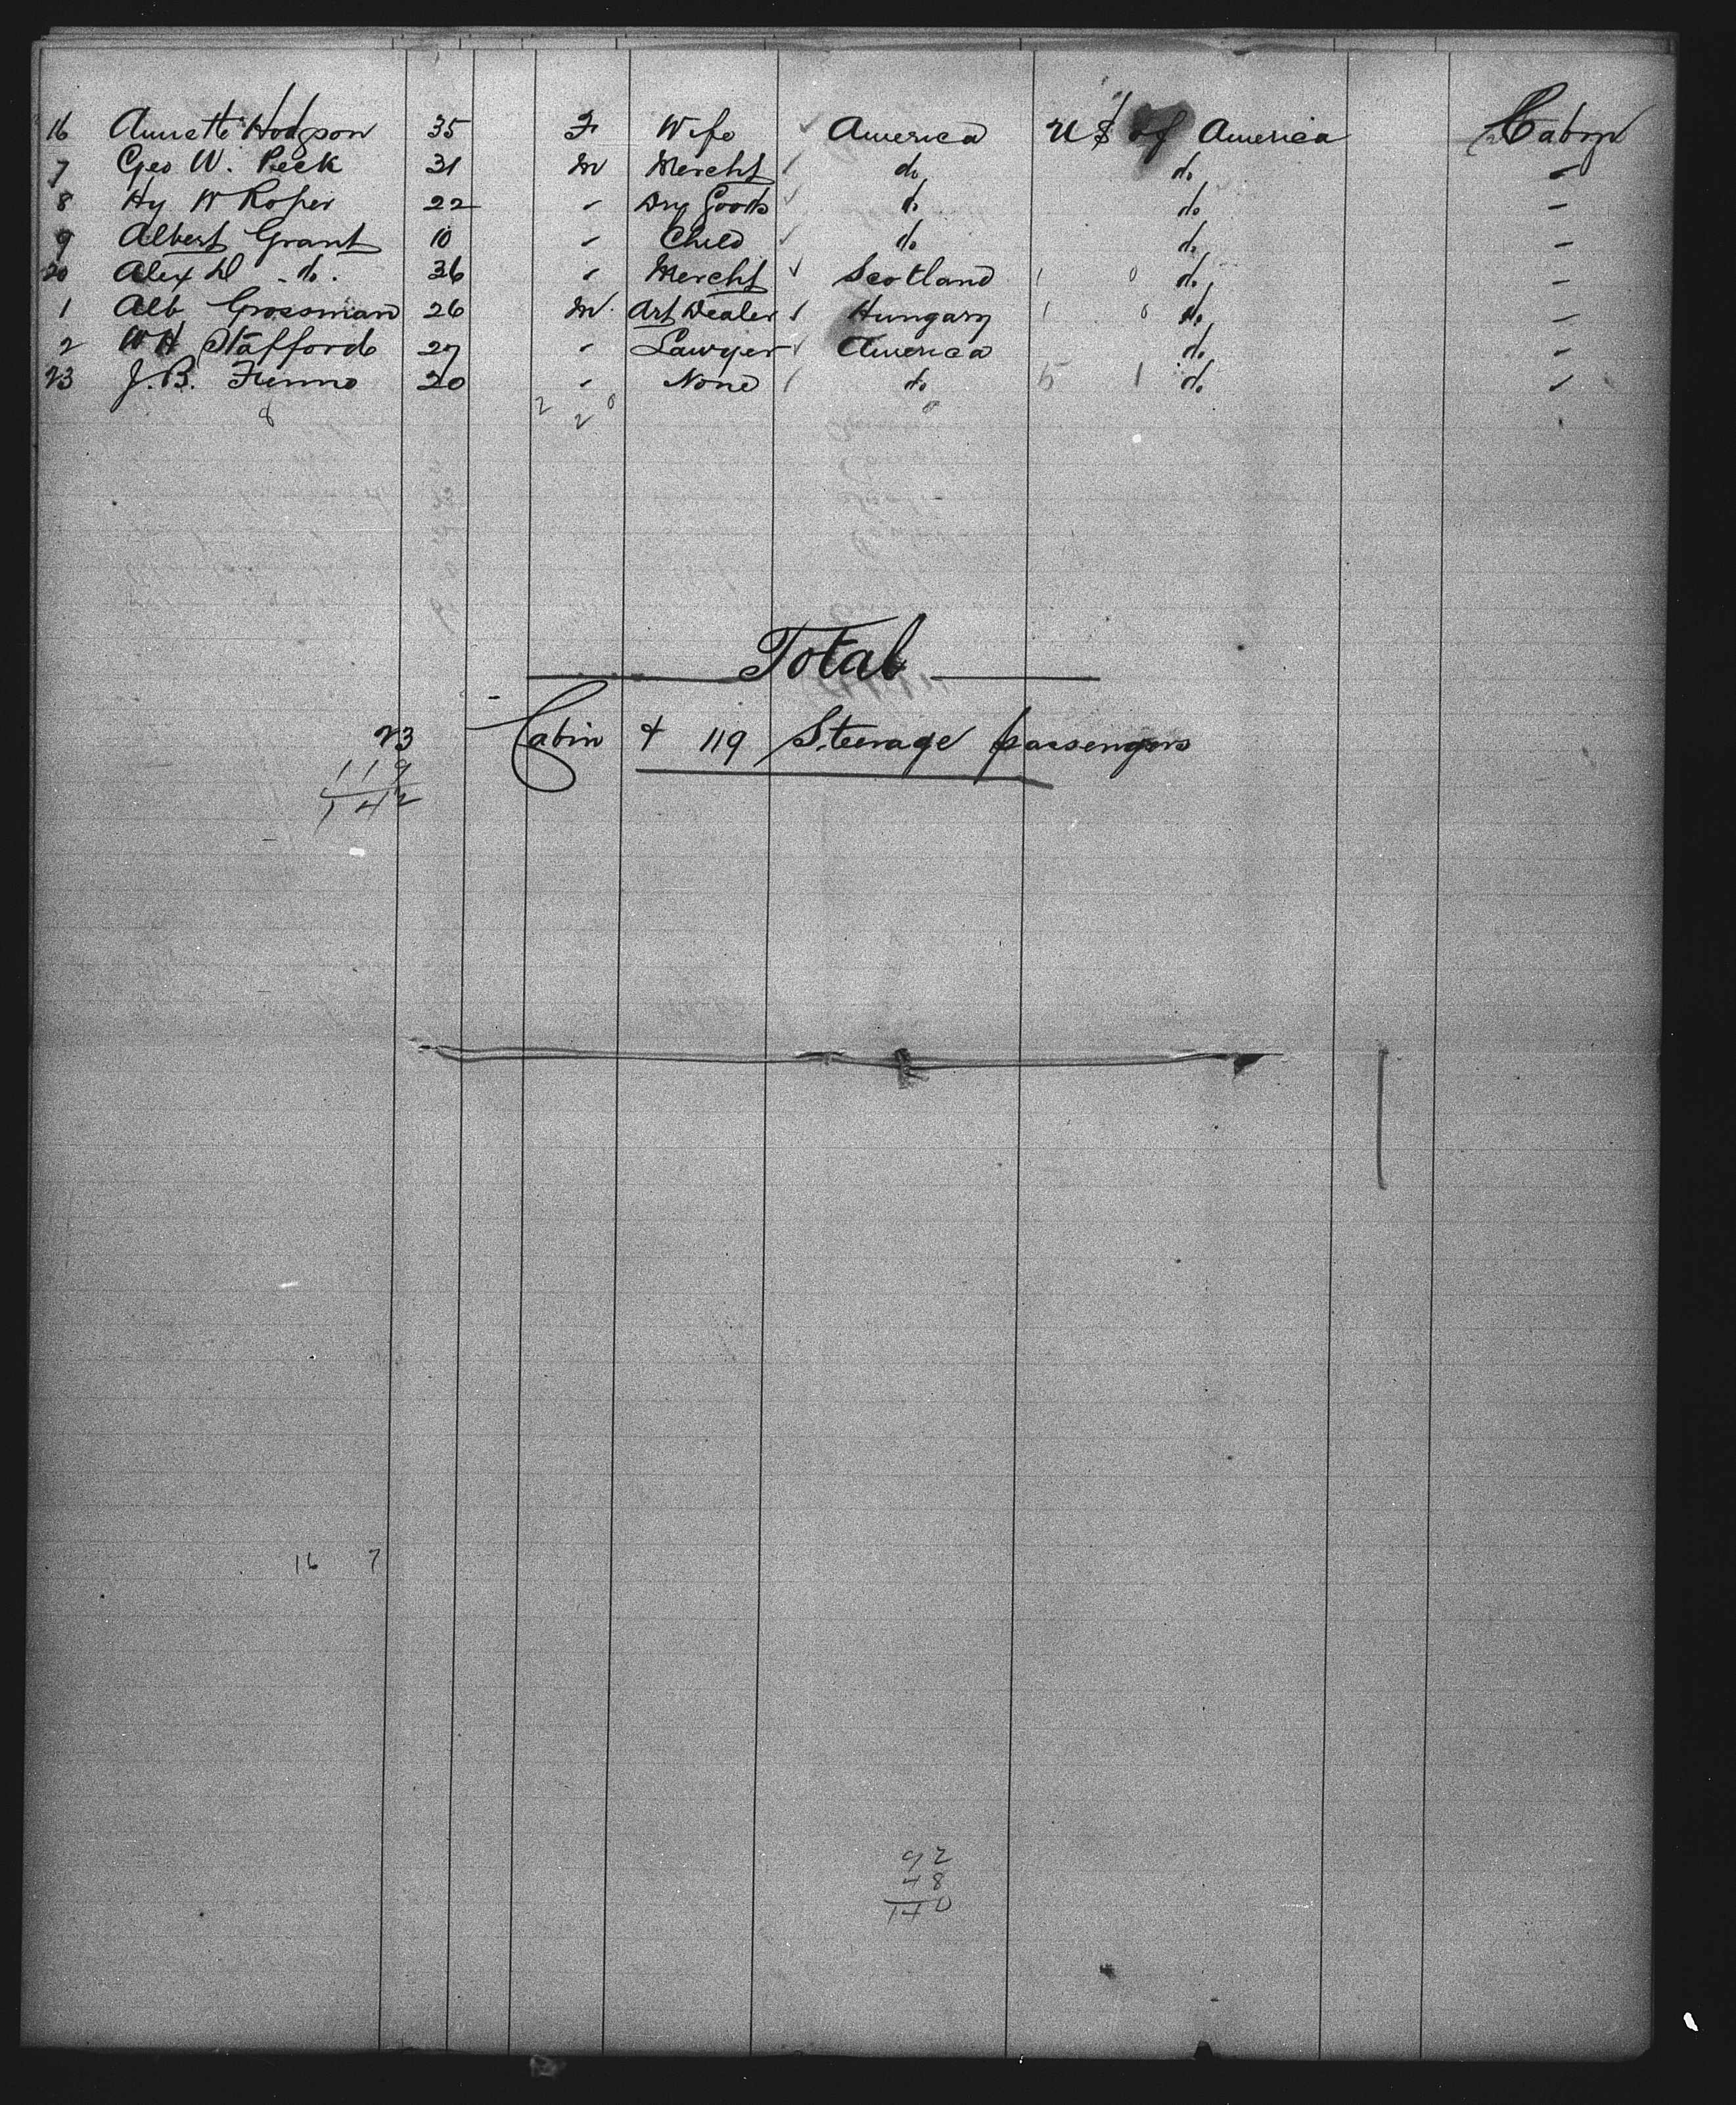 16 Annette Hodgson 35 F Wife America U S of America Cabin
7 Geo W. Peck 31 M Mercht do do "
8 Hy W Roper 22 " Dry Goods do do "
9 Albert Grant 10 " Child do do "
20 Alex D - do. 36 " Mercht Scotland do "
1 Alb Grossman 26 M. Art Dealer Hungary do "
2 W H Stafford 27 " Lawyer America do "
23 J. B. Fienno 20 " None do 5 1 do "
8 2 2 0
Total
23 Cabin + 119 Steerage passengers
119
142
16 7
92
48
140